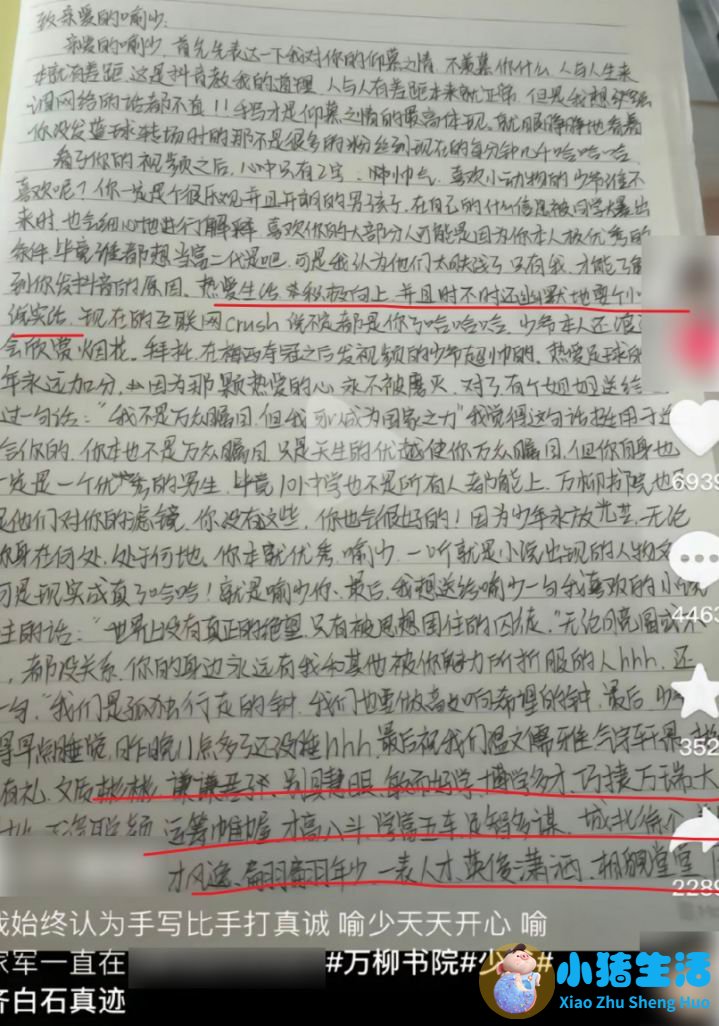 致亲爱的喻少:
亲爱的喻少,首先先表达一下我对你的仰慕之情,不羡慕你什么,人与人生来
就有差距,这是抖音教我的道理,人与人有差距本来就正常,但是我想
网络的话都不直!!手写才是仰慕之情的最高体现,就静静地看着
你没发篮球转场时的那不是很多的粉丝到现在的每分钟几千哈哈哈,
看了你的视频之后,心中只有2字:帅 帅气,喜欢小动物的少年谁不
喜欢呢?你一定是个很乐观并且开朗的男孩子,在自己的什么信息被同学大爆出
来时,也会细心地进行解释,喜欢你的大部分人可能是因为你本人极优秀的
条件,毕竟谁都想当富二代是吧,可是我认为他们太肤浅了,只有我,才能了解
到你发抖音的原因。热爱生活,积极向上,并且时不时还幽默地整个小
实话,现在的互联网crush说不定都是你了哈哈哈,少年本人还浪
会欣赏烟花,拜托,在梅西夺冠之后发视频的少年超帅的,热爱足球的
年永远加分,因为那颗热爱的心永不被磨灭,对了有个姐姐送给
过一句话:“我不是万众瞩目,但我可以成为国家之力”我觉得这句话挺用于
给你的,你本也不是万众瞩目,只是天生的优越使你万众瞩目,但你自身也
一定是一个优秀的男生,毕竟101中学也不是所有人都能上,万柳书院也
是他们对你的滤镜,你没有这些,你也会很好的!因为少年永放光芒,无论
你身在何处,处于何地,你本就优秀,喻少,一听就是小说出现的人物
可是现实成真了哈哈!就是喻少你、最后,我想送给喻少一句我喜欢的小说
主的话:“世界上没有真正的绝望,只有被思想困住的囚徒,”无论
,都没关系,你的身边永远有我和其他被你魅力所折服的人hhh,还
一句,“我们是孤独行走的钟,我们也要做高处响希望的钟,最后,少
得早点睡觉,昨晚11点多了还没睡hhh,最后祝我们温文儒雅,气宇轩昂,
有礼,文质彬彬,谦谦君子,别具慧眼,敏而好学,博学多才,巧捷万端,大
运筹帷幄,才高八斗,学富五车,足智多谋,城北徐公
才风逸、翩翩年少,一表人才,英俊潇洒,相貌堂堂,
6939
446
352
2289
我始终认为手写比手打真诚 喻少天天开心 喻
家军一直在
#万柳书院#少
#
齐白石真迹
小猪生活
Xiao Zhu Sheng Huo